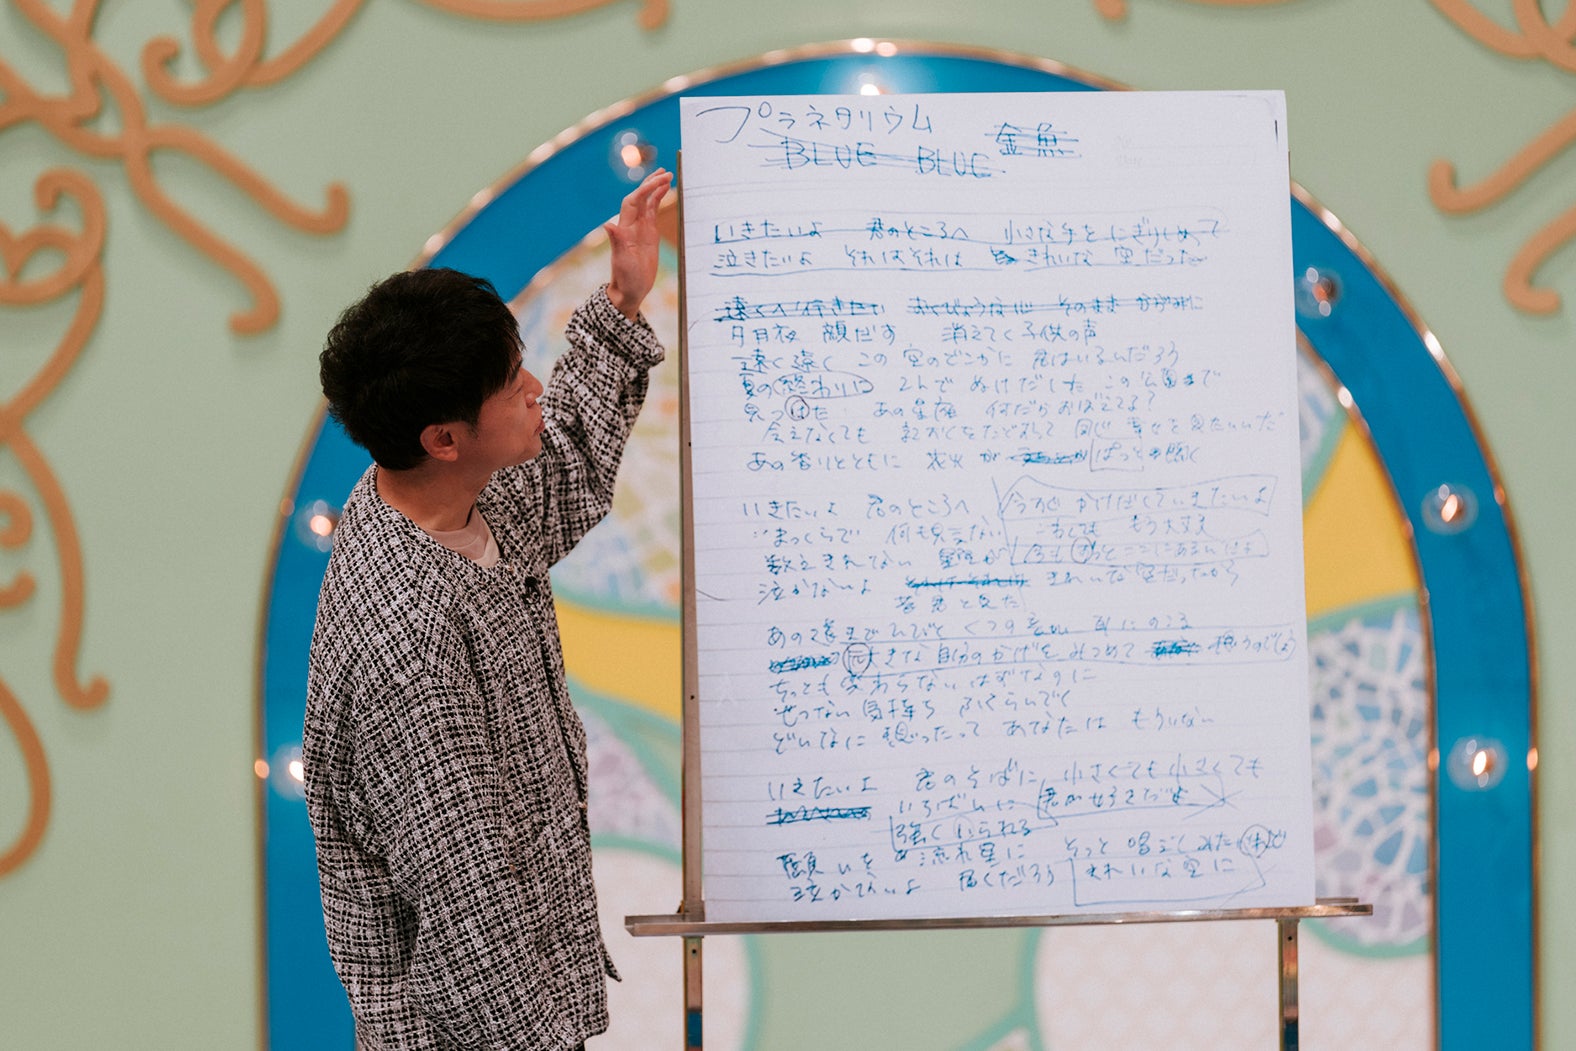 プラネタリウム
BLUE BLUE 金魚
いきたいよ 君のところへ 小さな手をにぎりしめて
泣きたいよ それはそれは きれいな空だった
遠くへ行きたい そのまま
夕月夜 顔だす 消えてく子供の声
遠く遠く この空のどこかに 君はいるんだろう
夏の終わりに 2人で ぬけだした この公園で
見つけた あの星座 何だか おぼえてる?
会えなくても 記おくをたどって 同じ 幸せを見たいんだ
あの香りとともに 花火が ぱっと開く
いきたいよ 君のところへ 今すぐ かけだしていきたいよ
まっくらで 何も見えない こわくても もう大丈夫
数えきれない 星空が 今も ずっと ここにあるんだよ
泣かないよ きれいな空だったから
昔 君と見た
あの遠までひびく くつの音が 耳にのこる
大きな 自分のかげを みつめて 想うのでしょう
ちっとも変わらないはずなのに
せつない気持ち ふくらんでく
どんなに想ったって あなたは もういない
いきたいよ 君のそばに 小さくても小さくても
いちばんに 君が好きだよ
強くいられる
願いを 流れ星に そっと 唱えてみたけれど
泣かないよ 届くだろう きれいな空に